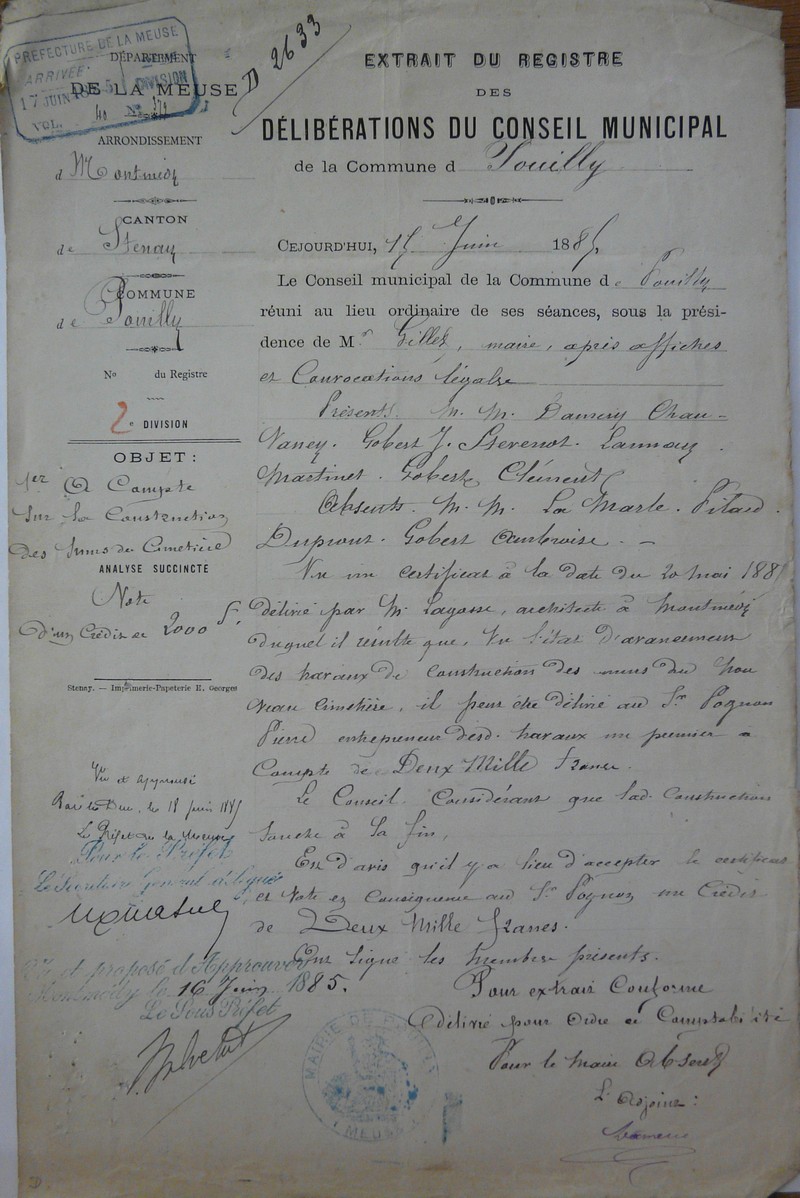 PREFECTURE DE LA MEUSE
ARRIVÉE
17 JUIN
DIVISION
VOL. No
D 2633
DÉPARTEMENT
DE LA MEUSE
ARRONDISSEMENT
d Montmédy
CANTON
de Stenay
COMMUNE
de Pouilly
No du Registre
2e DIVISION
OBJET :
1er A Compte
sur la Construction
des murs du Cimetière
ANALYSE SUCCINCTE
Vote
d'un Crédit de 2000 f.
Stenay. — Imprimerie-Papeterie H. Georges
Vu et approuvé
Bar-le-Duc, le 18 Juin 1885
Le Préfet de la Meuse
Pour le Préfet
Le Secrétaire Général délégué
Vu et proposé d'Approuver
Montmédy le 16 Juin 1885.
Le Sous Préfet
EXTRAIT DU REGISTRE
DES
DÉLIBÉRATIONS DU CONSEIL MUNICIPAL
de la Commune d Pouilly
CEJOURD'HUI, 15 Juin 1885
Le Conseil municipal de la Commune de Pouilly
réuni au lieu ordinaire de ses séances, sous la prési-
dence de Mr Gillet, maire, après affiches
et Convocations légales
Présents. M. M. Damery Chau-
Vaney. Gobert J. Stevenot. Lannoy.
Martinet. Gobert Clément
Absents. M. M. La Marle. Pitard.
Dupront. Gobert Ambroise. —
Vu un certificat à la date du 20 mai 1885
délivré par M. Lagosse, architecte à Montmédy
duquel il résulte que, Vu l'état d'avancement
des travaux de Construction des murs du Nou
veau Cimetière, il peut être délivré au Sr Pognon
Pierre entrepreneur desd. travaux un premier a
Compte de Deux Mille Francs.
Le Conseil Considérant que lad. Construction
touche à sa fin,
Est d'avis qu'il y a lieu d'accepter le certificat
et Vote en Conséquence au Sr Pognon un Crédit
de Deux Mille francs.
Ont signé les Membres présents.
Pour extrait Conforme
délivré pour Ordre et Comptabilité
Pour le Maire Absent
L'Adjoint :
MAIRIE DE POUILLY
MEUSE